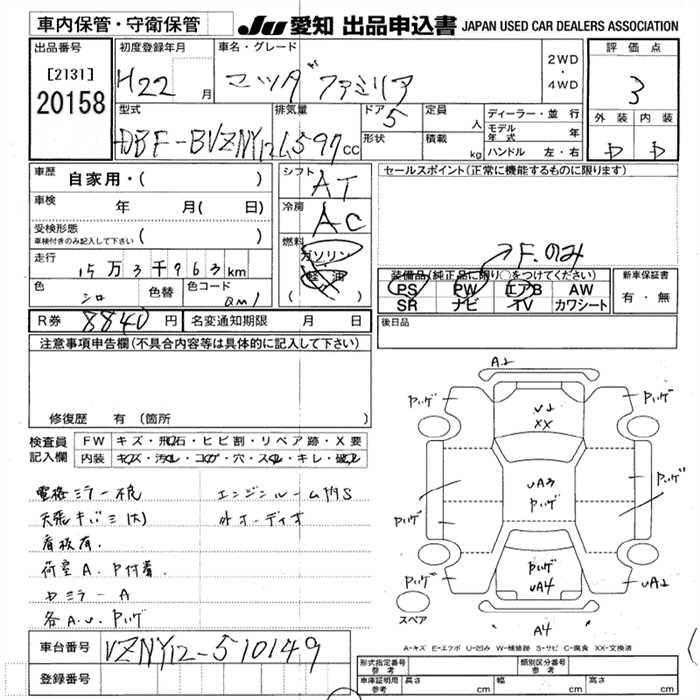 車内保管・守衛保管
JU 愛知 出品申込書 JAPAN USED CAR DEALERS ASSOCIATION
出品番号 [2131] 20158
初度登録年月 H22 月
車名・グレード マツダ ファミリア
2WD・4WD
評価点 3
外装 D 内装 D
型式 DBF-BVZNY12
排気量 1,597 cc
ドア 5
形状
定員 人
積載 kg
ディーラー・並行
モデル年式 年
ハンドル 左・右
車歴 自家用・( )
車検 年 月( 日)
受検形態 ( )
車検付きのみ記入して下さい
走行 15万3千963km
色 シロ 色替 色コード QM1
シフト AT
冷房 AC
燃料 ガソリン
軽油
( )
セールスポイント(正常に機能するものに限ります)
F.のみ
装備品(純正品に限り○をつけてください)
PS PW エアB AW
SR ナビ TV カワシート
新車保証書
有・無
R券 8840円 名変通知期限 月 日
後日品
注意事項申告欄(不具合内容等は具体的に記入して下さい)
修復歴 有 (箇所 )
検査員記入欄
FW キズ・飛石・ヒビ割・リペア跡・X要
内装 キズ・汚れ・コゲ・穴・スレ・キレ・破れ
電格ミラー不良 エンジンルーム内S
天張キバミ(大) 外オーディオ
看板有.
荷室A.P付着.
ドミラーA
各A.U.Pハゲ
A2
Pハゲ
Pハゲ
U2
XX
UA3
Pハゲ
Pハゲ
Pハゲ
Pハゲ
UA4
Pハゲ
UA2
スペア
A4
A-キズ E-エクボ U-凹み W-補修跡 S-サビ C-腐食 XX-交換済
車台番号 VZNY12-510149
登録番号
形式指定番号 参考
類別区分番号 参考
車庫証明用 参考 長さ cm 幅 cm 高さ cm